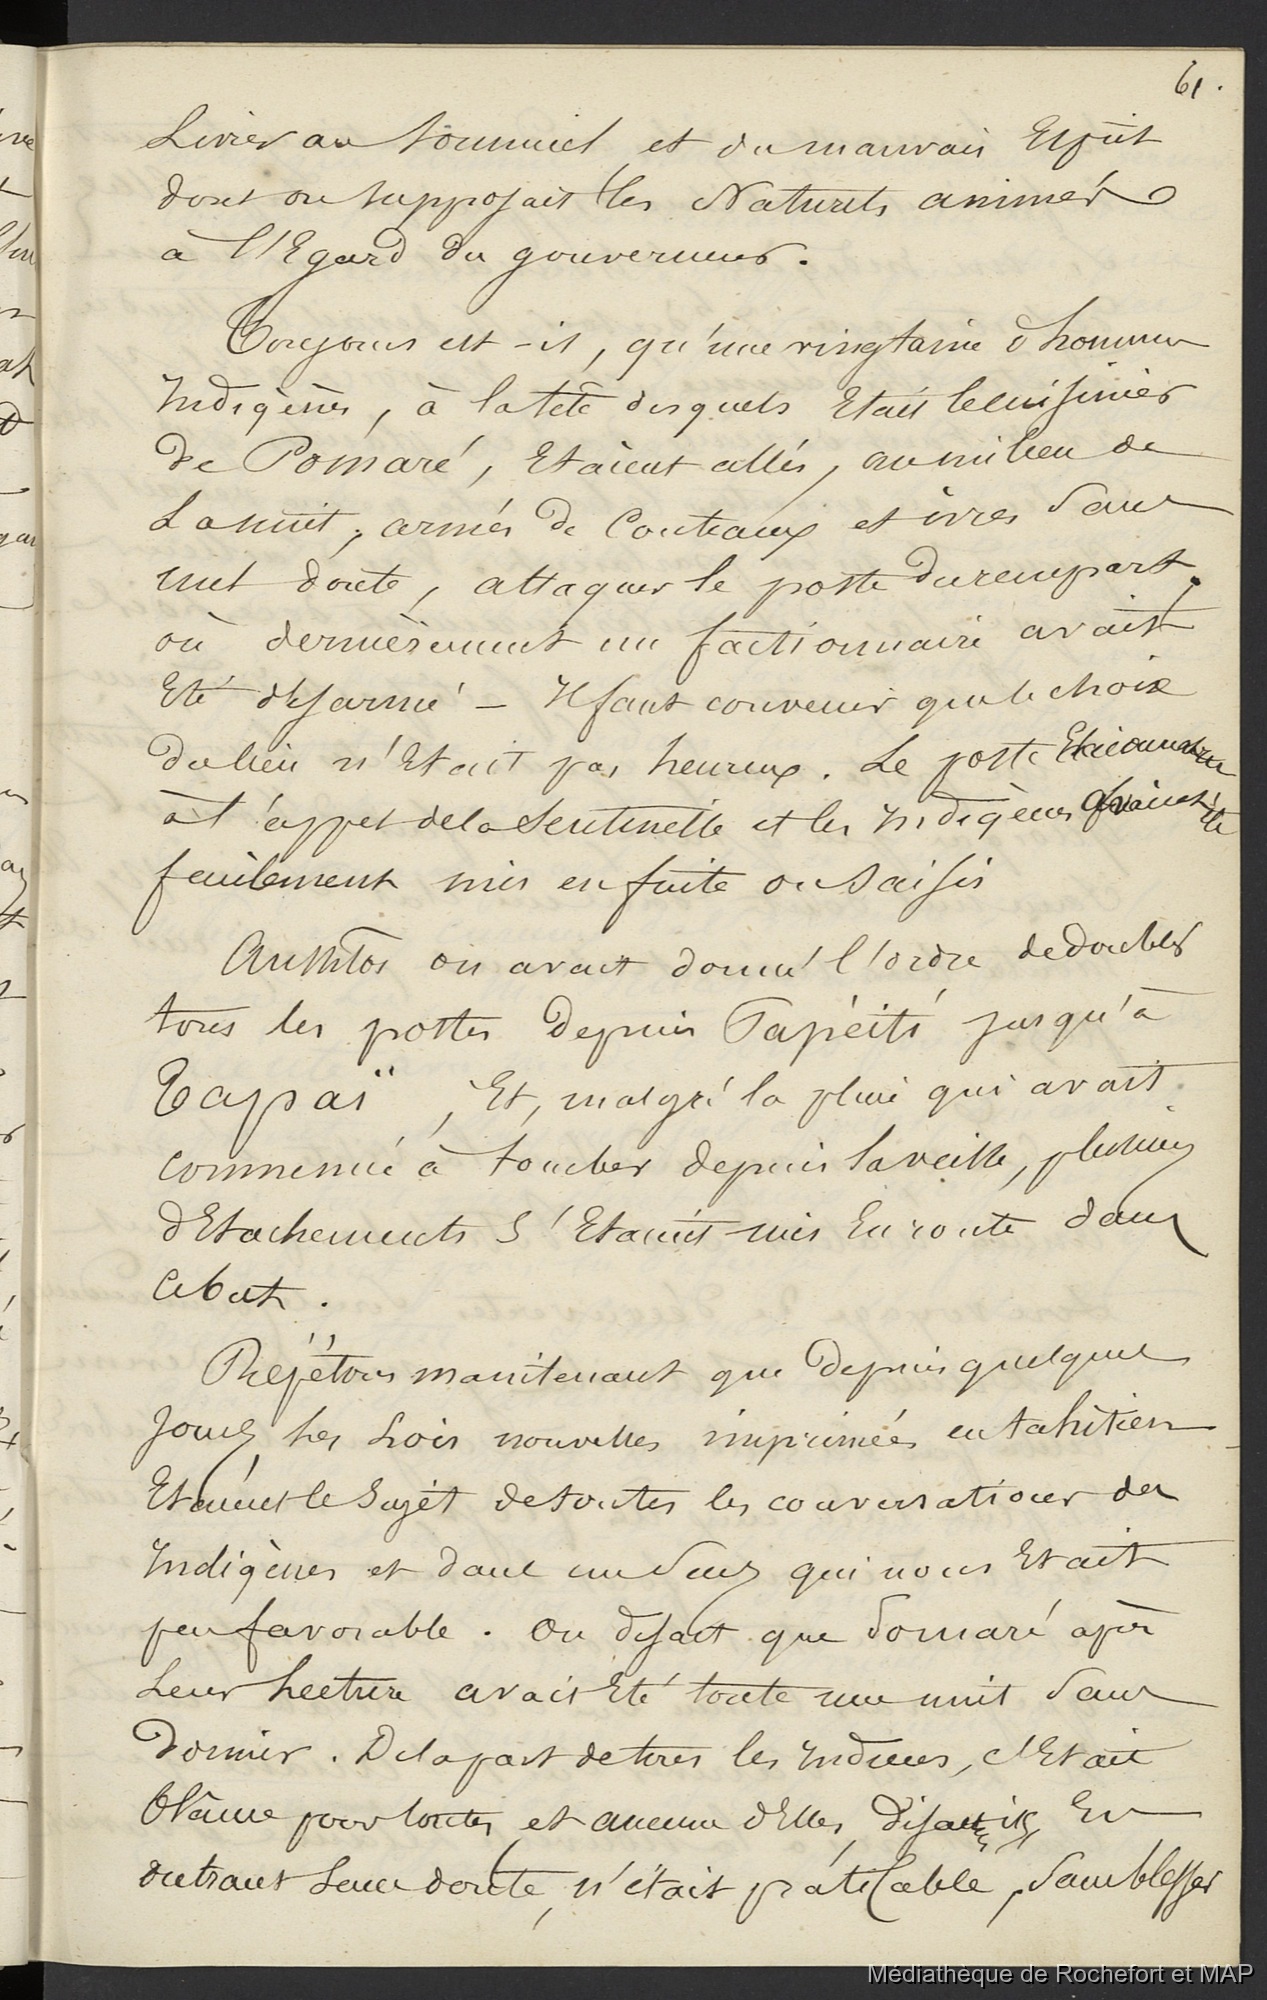 61.
Livrer au Sommeil et du mauvais Esprit
dont on supposait les Naturels animés
à l'Egard du gouverneur.
Toujours est-il, qu'une vingtaine d'hommes
Indigènes, à la tête desquels Etait le cuisinier
de Pomaré, Etaient allés, au milieu de
La nuit, armés de Couteaux et ivres Sans
nul doute, attaquer le poste du rempart,
où dernièrement un factionnaire avait
Eté désarmé – Il faut convenir que le choix
du lieu n'Etait pas heureux. Le poste
à l'appel de la Sentinelle et les Indigènes avaient été
facilement mis en fuite ou Saisis
Aussitôt on avait donné l'ordre de doubler
tous les postes depuis Papéïti jusqu'à
Tapaï, Et, malgré la pluie qui avait
commencé à tomber depuis la veille, plusieurs
dEtachements S'Etaient mis En route dans
ce but.
Répétons maintenant que Depuis quelques
Jours les Lois nouvelles imprimées en tahitien
Etaient le Sujet de toutes les conversations des
Indigènes et dans un Sens qui nous Etait
peu favorable. On disait que Pomaré après
Leur Lecture avait Eté toute une nuit Sans
Dormir. De la part de tous les Indiens, c'Etait
blâme pour toutes et aucune d'Elles, disaient-ils, En
outrant Leur doute, n'était praticable, Sans blesser
Médiathèque de Rochefort et MAP